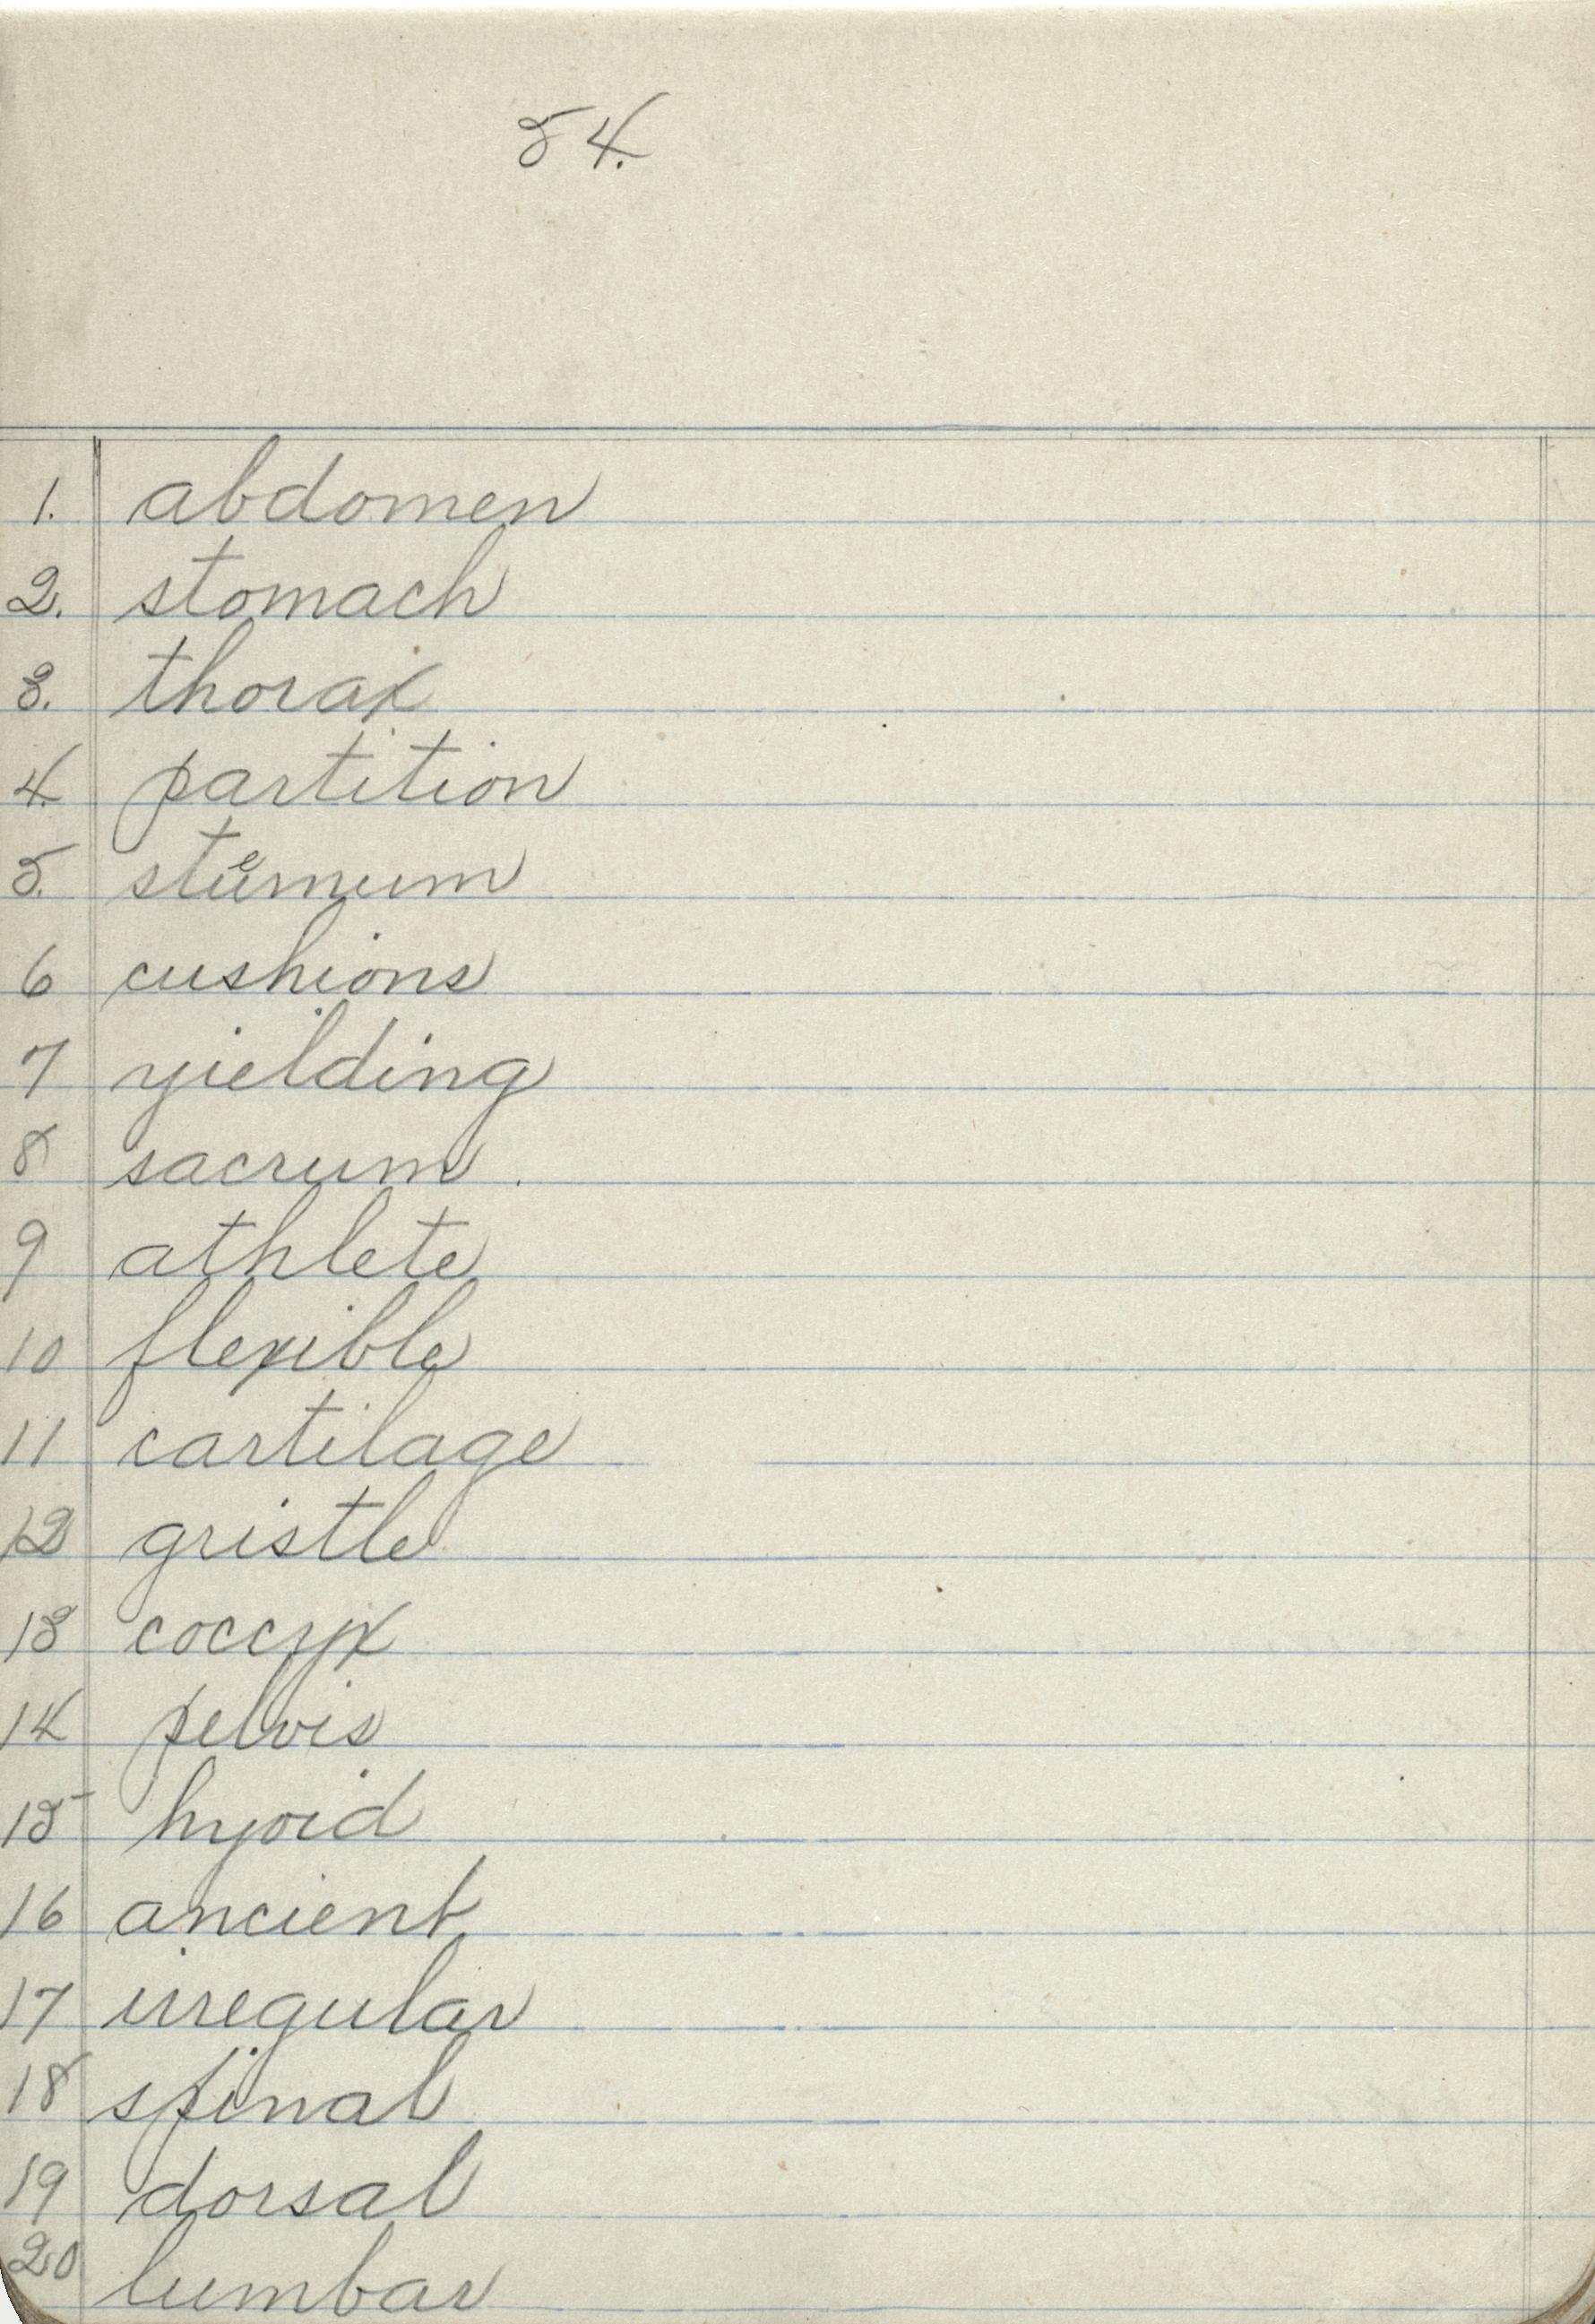 54.
1. abdomen
2. stomach
3. thorax
4. partition
5. sternum
6 cushions
7 yielding
8 sacrum.
9 athlete
10 flexible
11 cartilage
12 gristle
13 coccyx
14 pelvis
15 hyoid
16 ancient
17 irregular
18 spinal
19 dorsal
20 lumbar